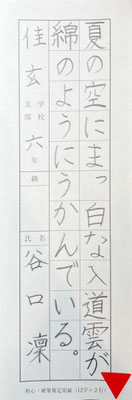 夏の空にまっ白な入道雲が
綿のようにうかんでいる。
佳玄 学校支部 六年級 氏名 谷口凜
初心・硬筆規定用紙(12字×2行)